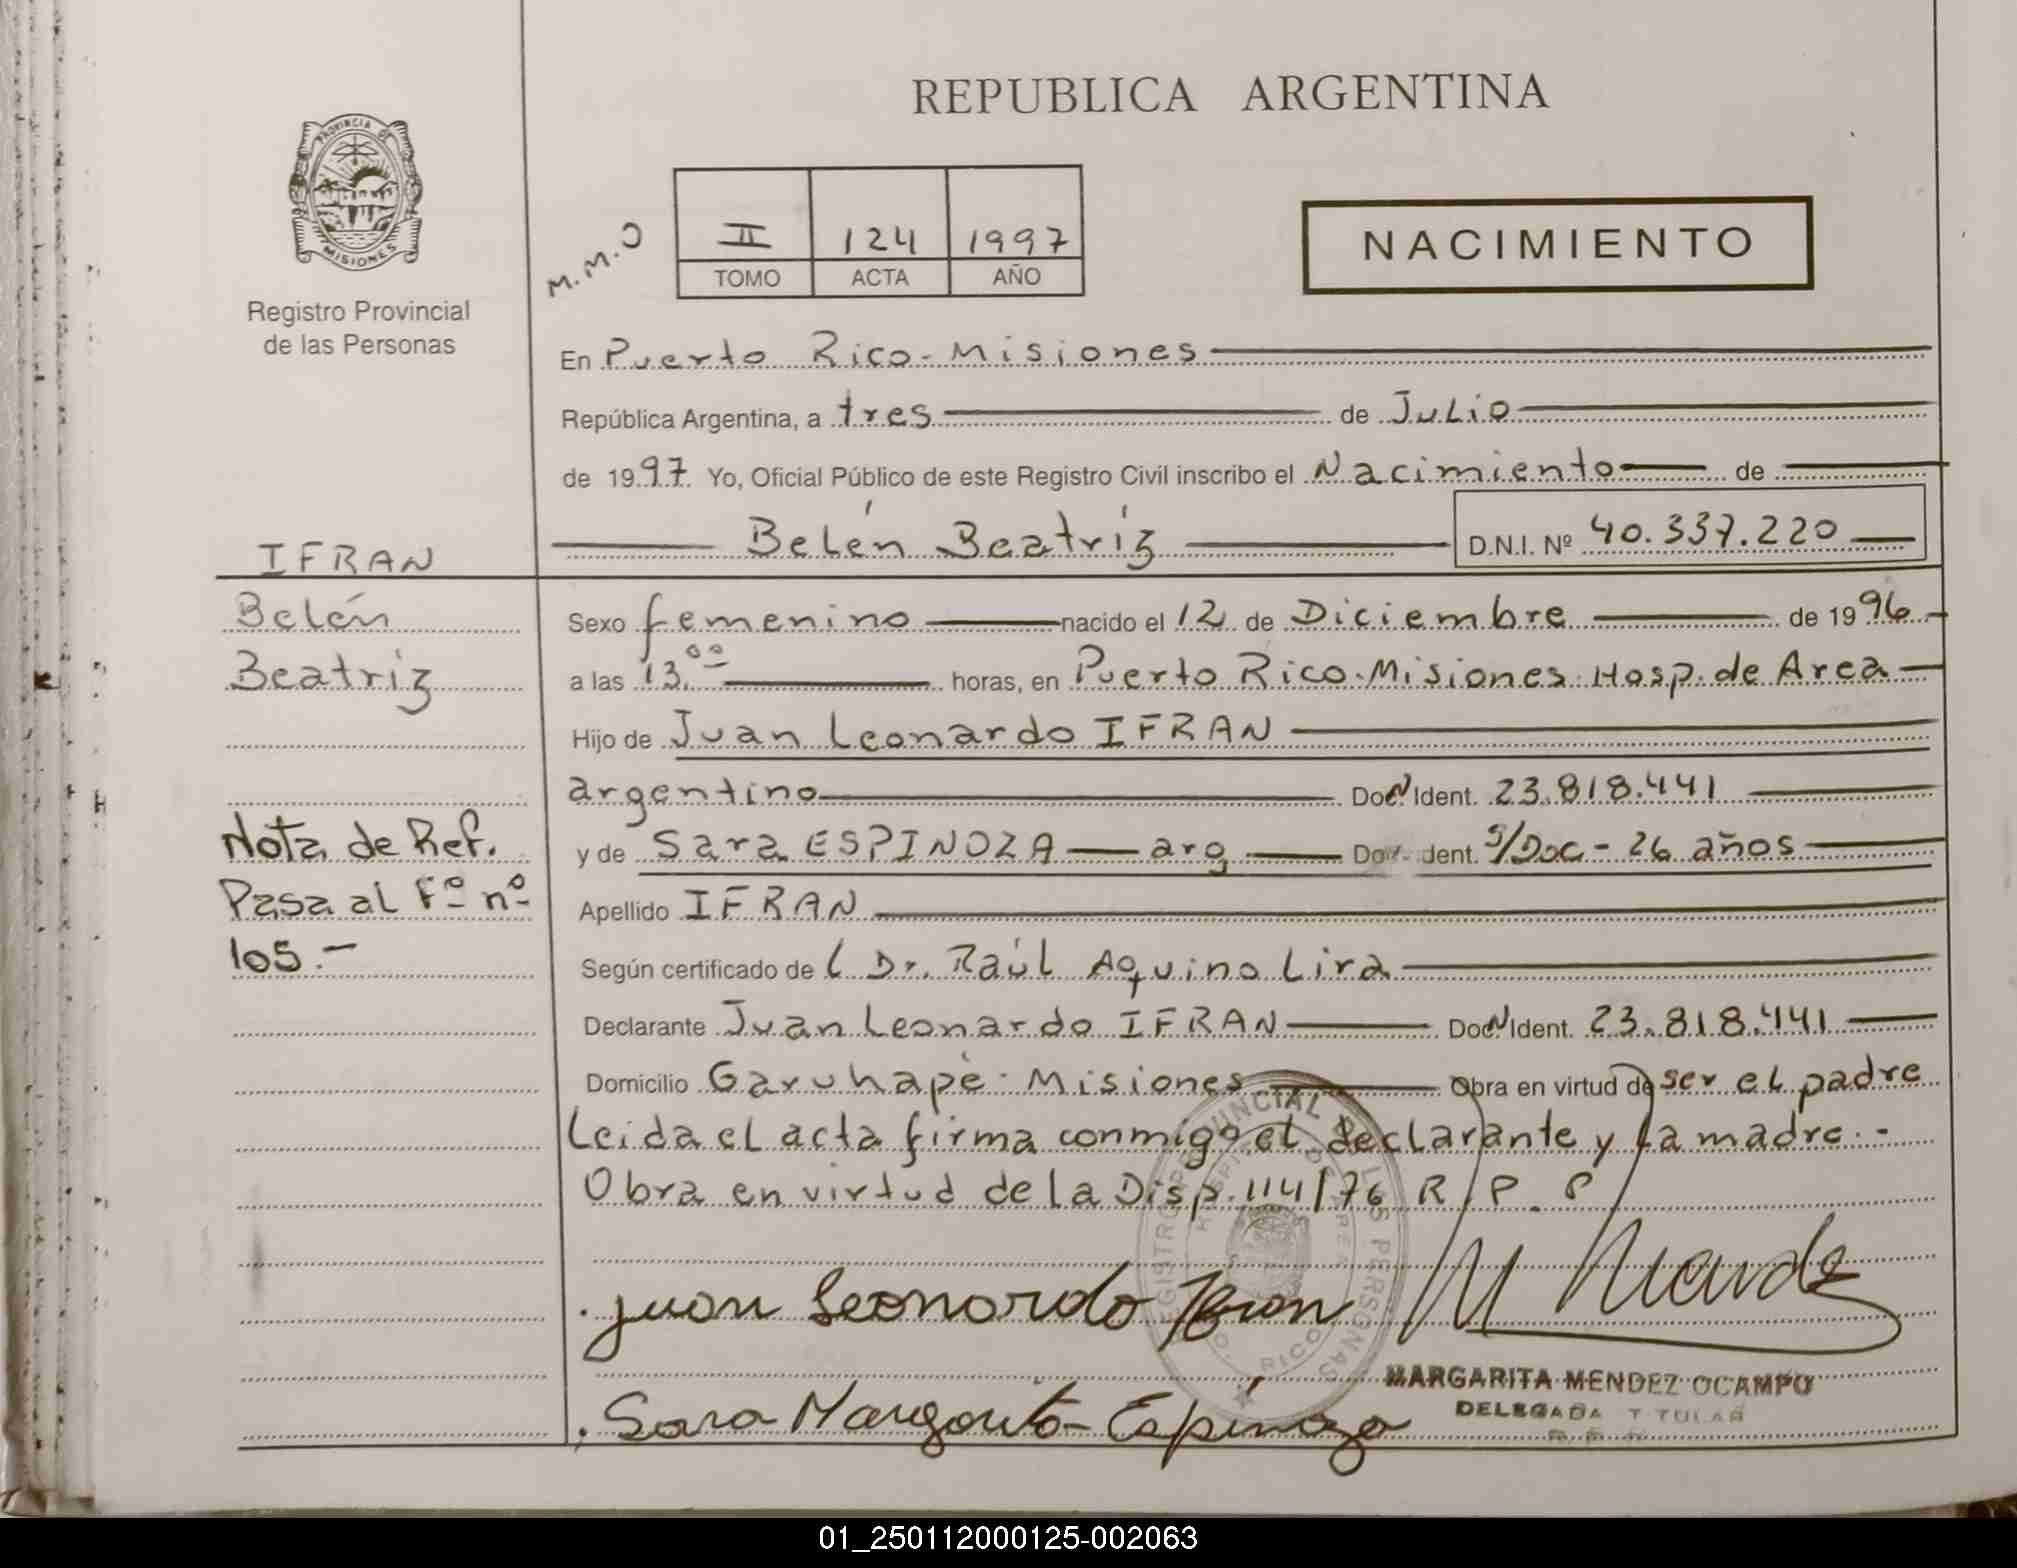 REPUBLICA ARGENTINA
PROVINCIA DE
MISIONES
Registro Provincial
de las Personas
M.M.O
II 124 1997
TOMO ACTA AÑO
NACIMIENTO
En Puerto Rico - Misiones
República Argentina, a tres de Julio
de 1997. Yo, Oficial Público de este Registro Civil inscribo el Nacimiento de
Belén Beatriz D.N.I. Nº 40.337.220
IFRAN
Belén
Beatriz
Nota de Ref.
Pasa al Fº nº
105.-
Sexo femenino nacido el 12 de Diciembre de 1996
a las 13.00 horas, en Puerto Rico. Misiones. Hosp. de Area
Hijo de Juan Leonardo IFRAN
argentino Doc. N Ident. 23.818.441
y de Sara ESPINOZA arg Ident. S/Doc - 26 años
Apellido IFRAN
Según certificado del Dr. Raúl Aquino Lira
Declarante Juan Leonardo IFRAN Doc N Ident. 23.818.441
Domicilio Garuhapé - Misiones Obra en virtud de ser el padre
Leida el acta firma conmigo el declarante y la madre.-
Obra en virtud de la Disp. 114/76 R.P.P
Juan Leonardo Ifran
MARGARITA MENDEZ OCAMPO
DELEGADA TITULAR
Sara Margarita Espinoza
01_250112000125-002063